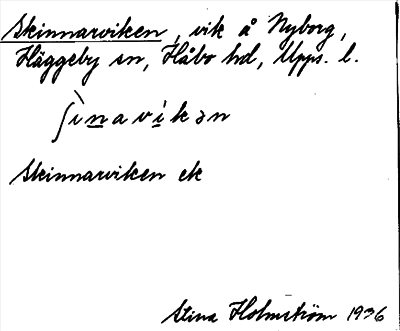 Skinnarviken, vik å Nyborg,
Häggeby sn, Håbo hd, Upps. l.
ʃìnavikən
Skinnarviken ek
Stina Holmström 1936